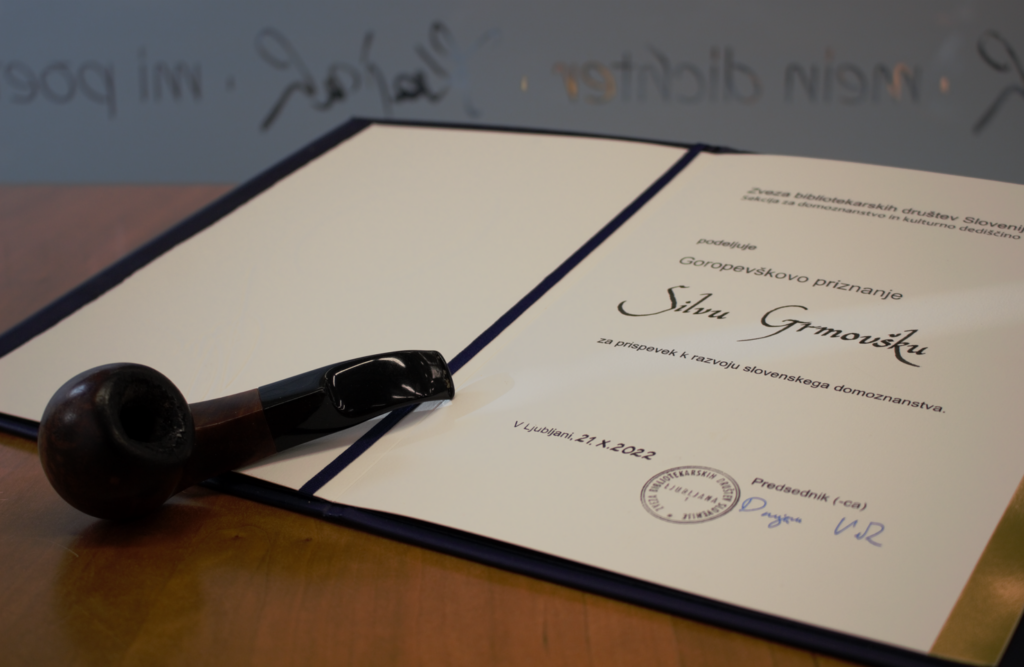 mi poe
mein dichter
Zveza bibliotekarskih društev Slovenij
sekcija za domoznanstvo in kulturno dediščino
podeljuje
Goropevškovo priznanje
Silvu Grmovšku
za prispevek k razvoju slovenskega domoznanstva.
V Ljubljani, 21. X. 2022
Predsednik (-ca)
ZVEZA BIBLIOTEKARSKIH DRUŠTEV SLOVENIJE
LJUBLJANA
1